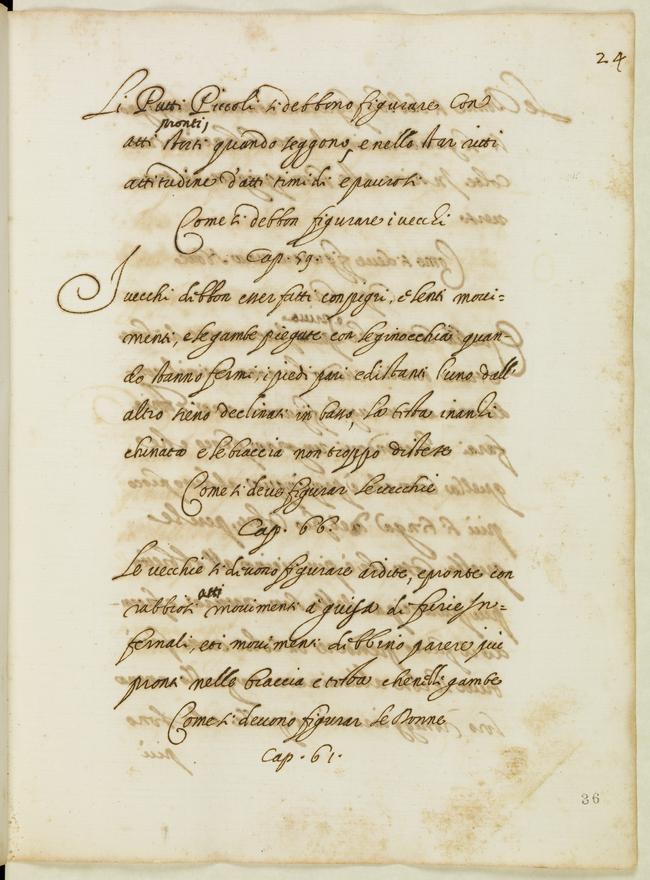 24
Li Putti Piccoli si debbono figurare con
pronti,
atti storti quando seggono, e nello star ritti
attitudine d'atti timidi e paurosi
Come si debbon figurare i vecchi
Cap. 59.
I vecchi debbon esser fatti con pigri, e lenti movi=
menti, e le gambe piegate con le ginocchia quan=
do stanno fermi, i piedi pari e distanti l'uno dall'
altro sieno declinati in basso, la testa inanzi
chinata e le braccia non troppo distese
Come si deve figurar le vecchie
Cap. 66.
Le vecchie si devono figurare ardite, e pronte con
atti
rabbiosi movimenti a guisa di furie In=
fernali, et i movimenti debbino parere piu
pronti nelle braccia e testa che nelli gambe
Come si devono figurar le Donne
Cap. 61.
36